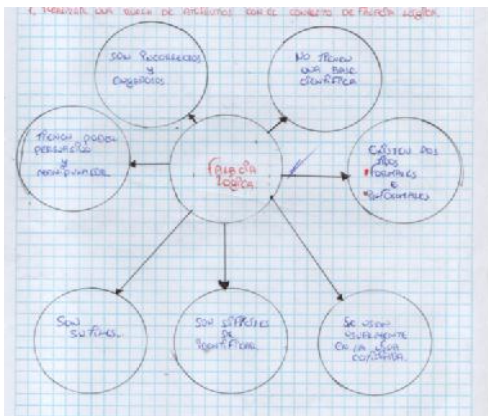 1. REALIZAR UNA RUEDA DE ATRIBUTOS CON EL CONCEPTO DE FALACIA LOGICA.
SON INCORRECTOS
Y
ENGAÑOSOS
NO TIENEN
UNA BASE
CIENTIFICA
TIENEN PODER
PERSUASIVO
Y
MANIPULADOR
FALACIA
LOGICA
EXISTEN DOS
TIPOS
FORMALES
E
INFORMALES
SON
SUTILES.
SON DIFICILES
DE
IDENTIFICAR.
SE USAN
USUALMENTE
EN LA VIDA
COTIDIANA.